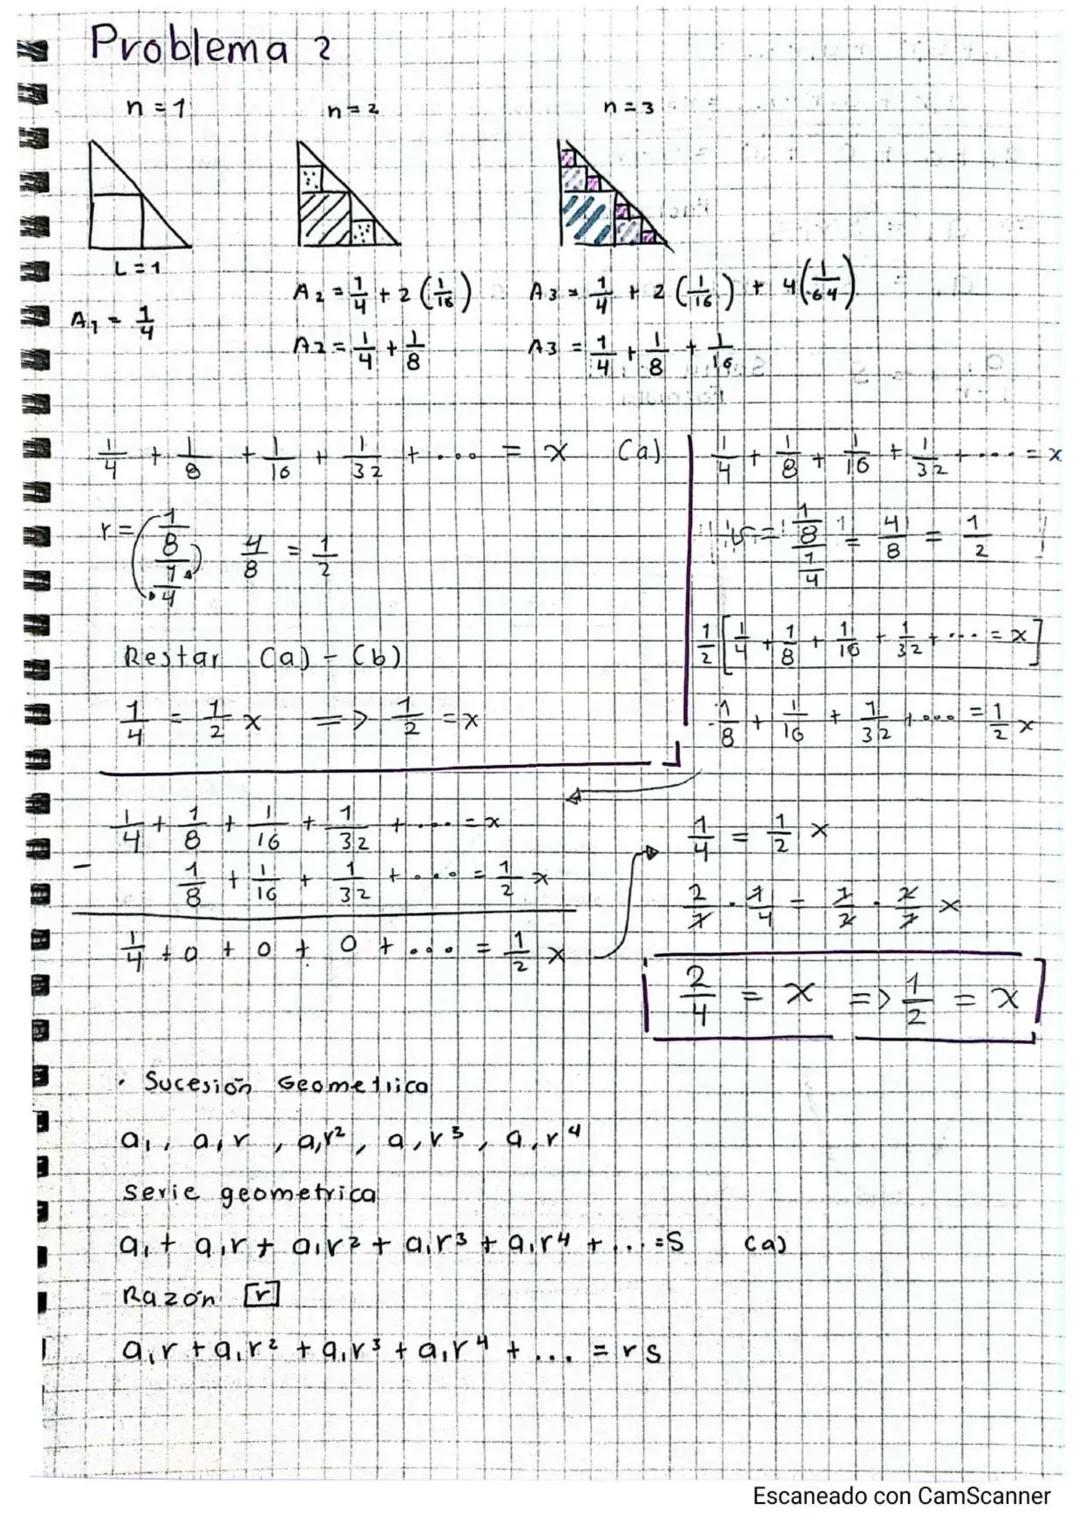 Problema 2
n = 1
n = 2
n = 3
L = 1
A1 = 1/4
A2 = 1/4 + 2 (1/16)
A2 = 1/4 + 1/8
A3 = 1/4 + 2 (1/16) + 4 (1/64)
A3 = 1/4 + 1/8 + 1/16
1/4 + 1/8 + 1/16 + 1/32 + .... = x (a)
r = (1/8)/(1/4) 4/8 = 1/2
Restar (a) - (b)
1/4 = 1/2 x => 1/2 = x
1/4 + 1/8 + 1/16 + 1/32 + .... = x
= (1/8)/(1/4) = 4/8 = 1/2
1/2 [1/4 + 1/8 + 1/16 + 1/32 + ... = x]
1/8 + 1/16 + 1/32 + .... = 1/2 x
1/4 + 1/8 + 1/16 + 1/32 + .... = x
- 1/8 + 1/16 + 1/32 + .... = 1/2 x
1/4 + 0 + 0 + 0 + .... = 1/2 x
1/4 = 1/2 x
2/1 · 1/4 = 1/2 · 2/1 x
2/4 = x => 1/2 = x
· Sucesión Geometrica
a1, a1r, a1r², a1r³, a1r⁴
serie geometrica
a1 + a1r + a1r² + a1r³ + a1r⁴ + ... = S (a)
Razón [r]
a1r + a1r² + a1r³ + a1r⁴ + ... = rs
Escaneado con CamScanner